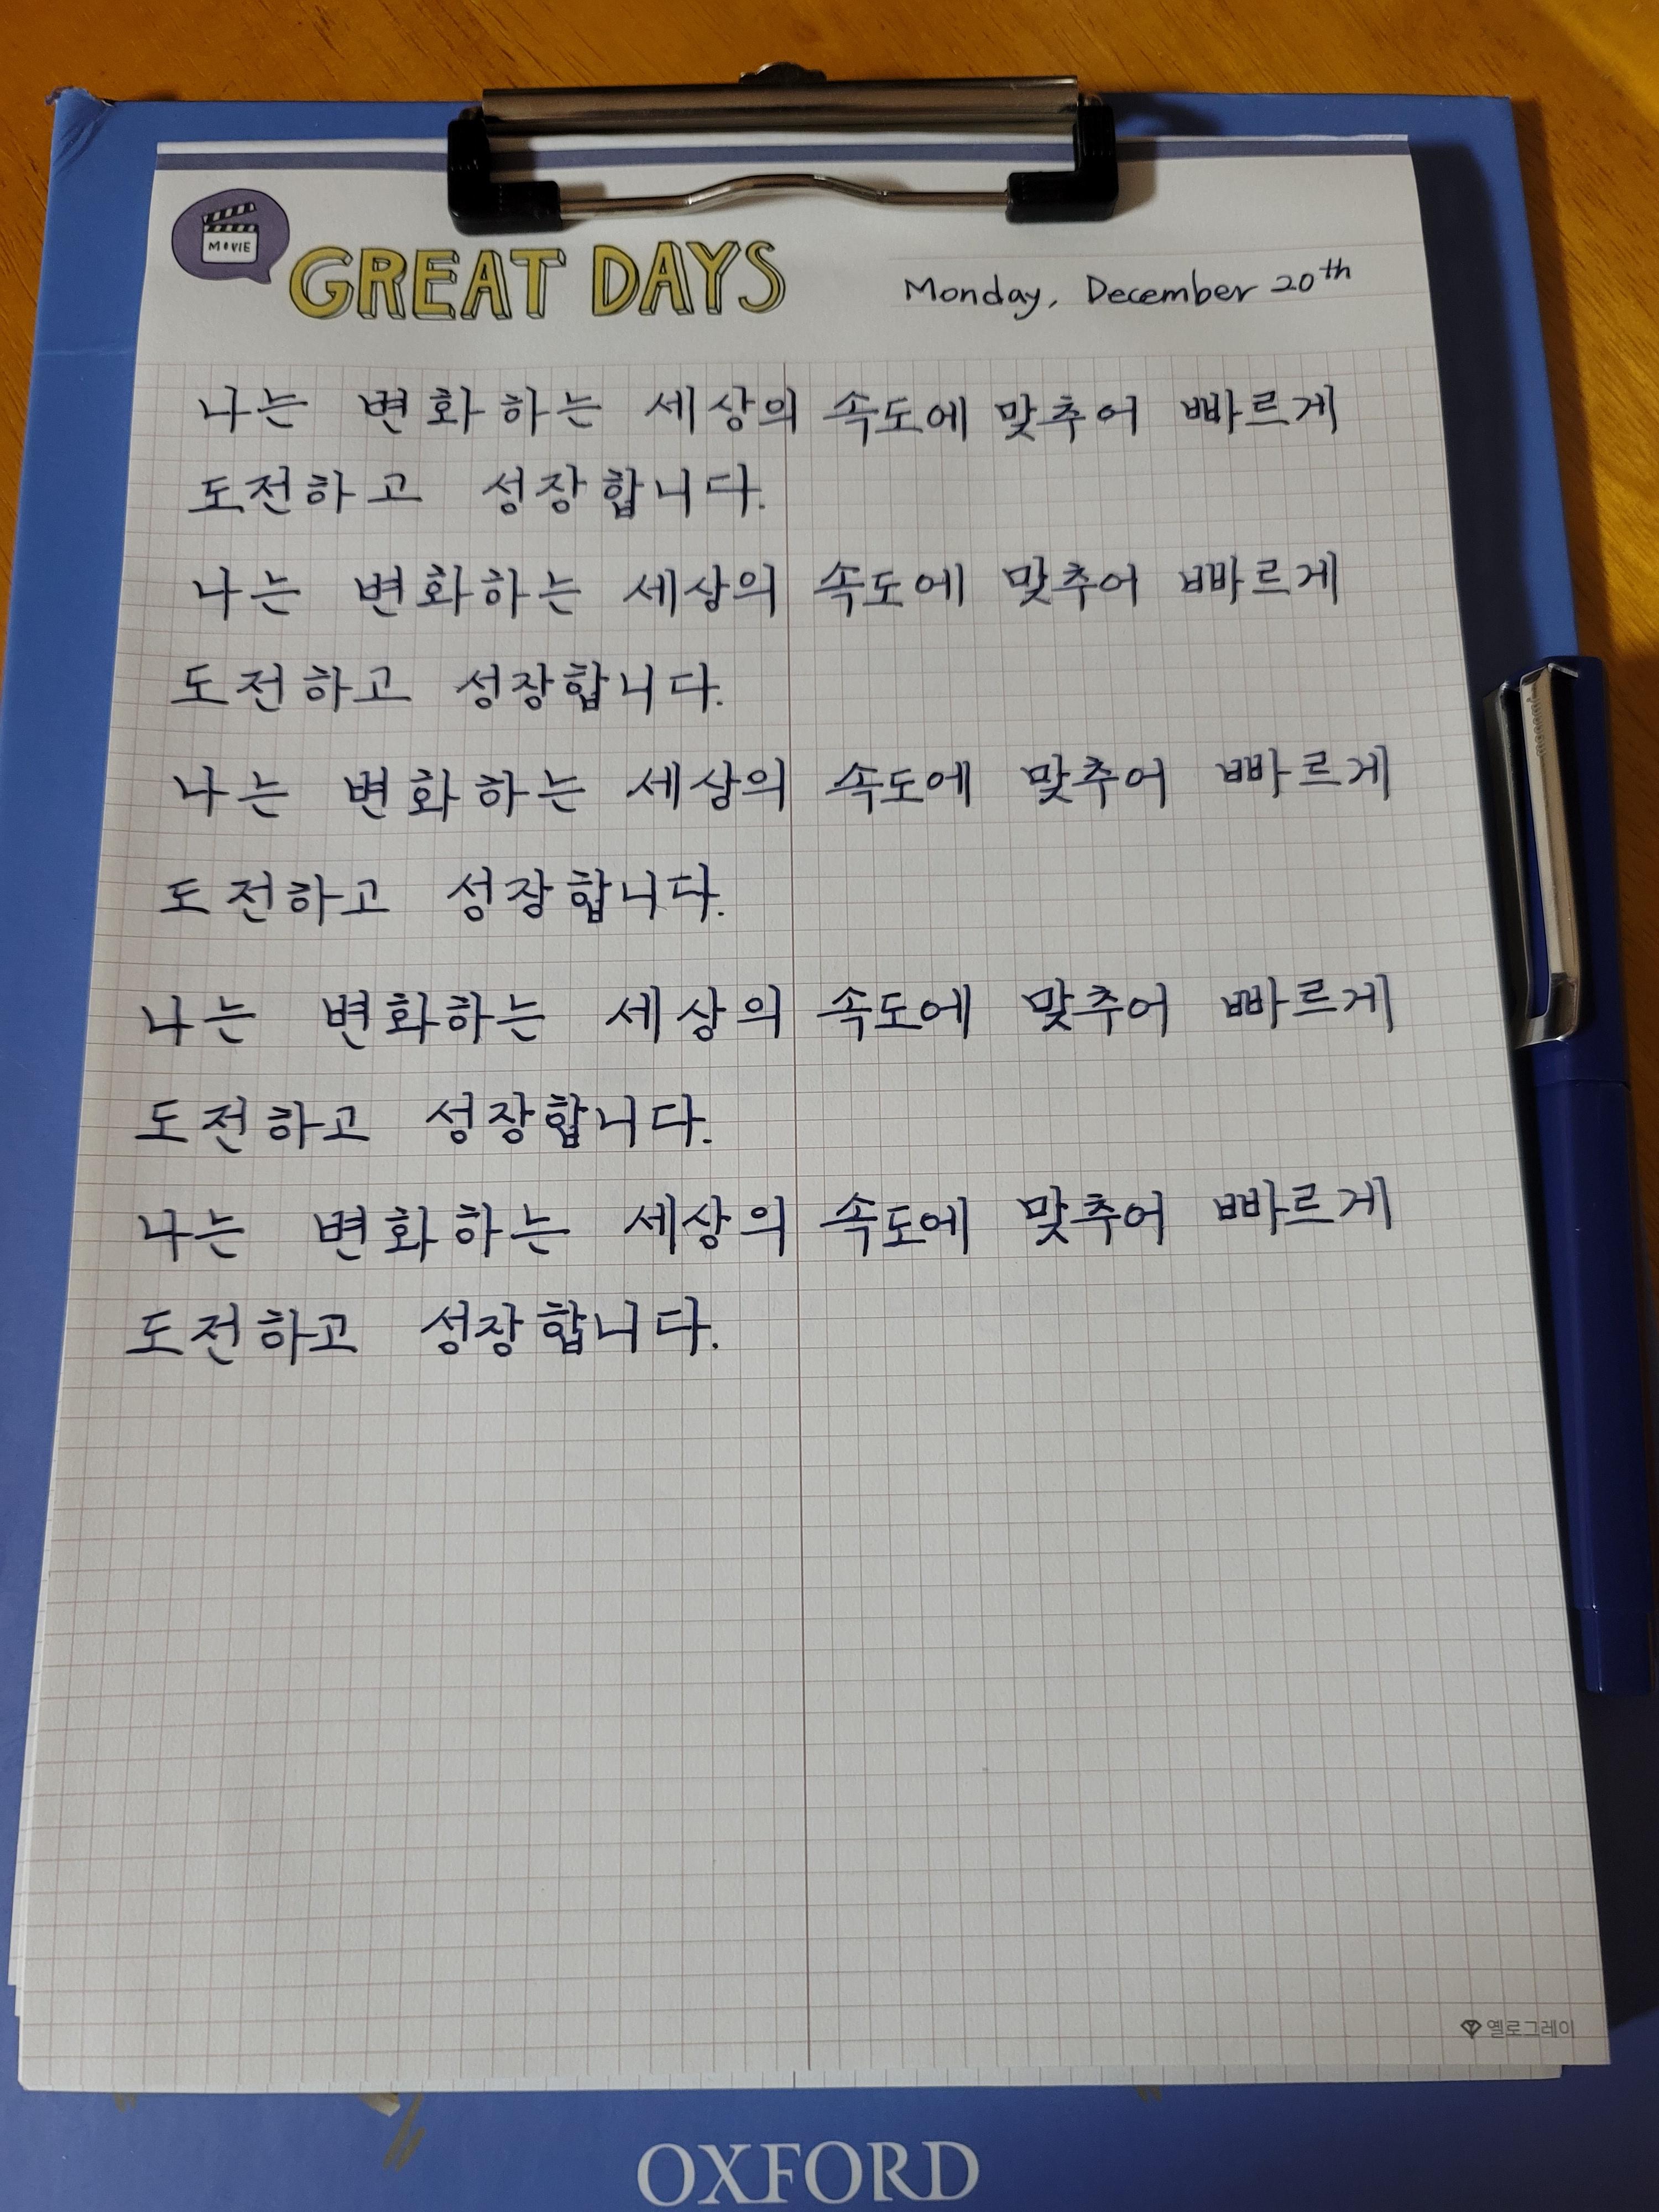 MOVIE
GREAT DAYS
Monday, December 20th
나는 변화하는 세상의 속도에 맞추어 빠르게
도전하고 성장합니다.
나는 변화하는 세상의 속도에 맞추어 빠르게
도전하고 성장합니다.
나는 변화하는 세상의 속도에 맞추어 빠르게
도전하고 성장합니다.
나는 변화하는 세상의 속도에 맞추어 빠르게
도전하고 성장합니다.
나는 변화하는 세상의 속도에 맞추어 빠르게
도전하고 성장합니다.
옐로그레이
OXFORD